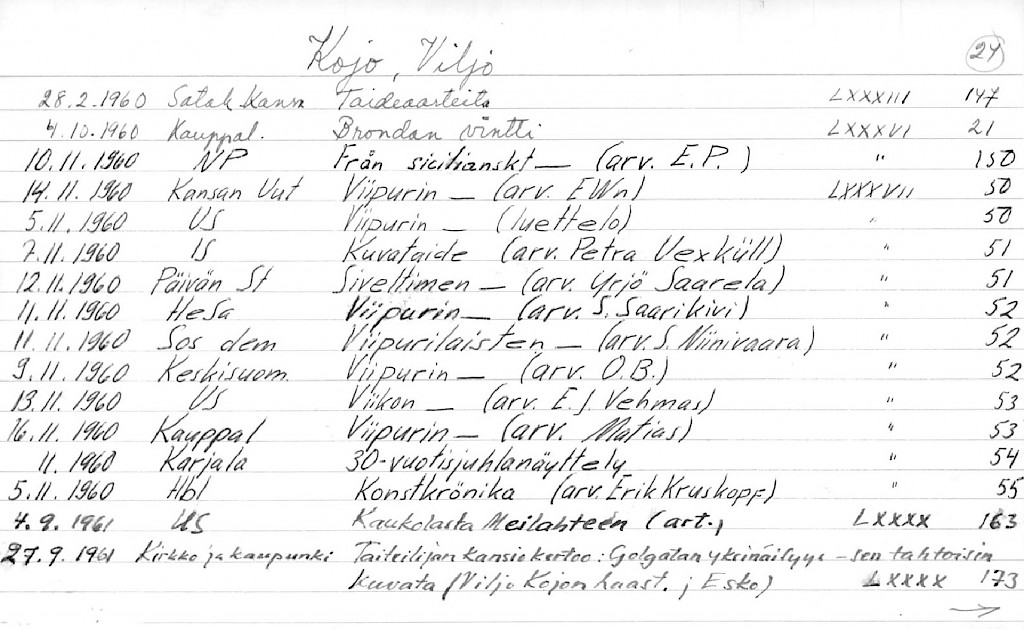 Kojo, Viljo 24
28.2.1960 Satak Kansa Taideaarteita LXXXIII 147
4.10.1960 Kauppal. Brondan vintti LXXXVI 21
10.11.1960 NP Från sicilianskt — (arv. E.P.) " 150
14.11.1960 Kansan Uut Viipurin — (arv. EWn) LXXXVII 50
5.11.1960 US Viipurin — (luettelo) " 50
7.11.1960 IS Kuvataide (arv. Petra Uexküll) " 51
12.11.1960 Päivän St Siveltimen — (arv. Yrjö Saarela) " 51
11.11.1960 HeSa Viipurin — (arv. S. Saarikivi) " 52
11.11.1960 Sos dem Viipurilaisten — (arv. S. Niinivaara) " 52
9.11.1960 Keskisuom. Viipurin — (arv. O.B.) " 52
13.11.1960 US Viikon — (arv. E.J. Vehmas) " 53
16.11.1960 Kauppal Viipurin — (arv. Matias) " 53
11.1960 Karjala 30-vuotisjuhlanäyttely " 54
5.11.1960 Hbl Konstkrönika (arv. Erik Kruskopf) " 55
4.9.1961 US Kaukolasta Meilahteen (art.) LXXXX 163
27.9.1961 Kirkko ja kaupunki Taiteilijan kansio kertoo: Golgatan yksinäisyys – sen tahtoisin
kuvata (Viljo Kojon haast. ; Esko) LXXXX 173
→